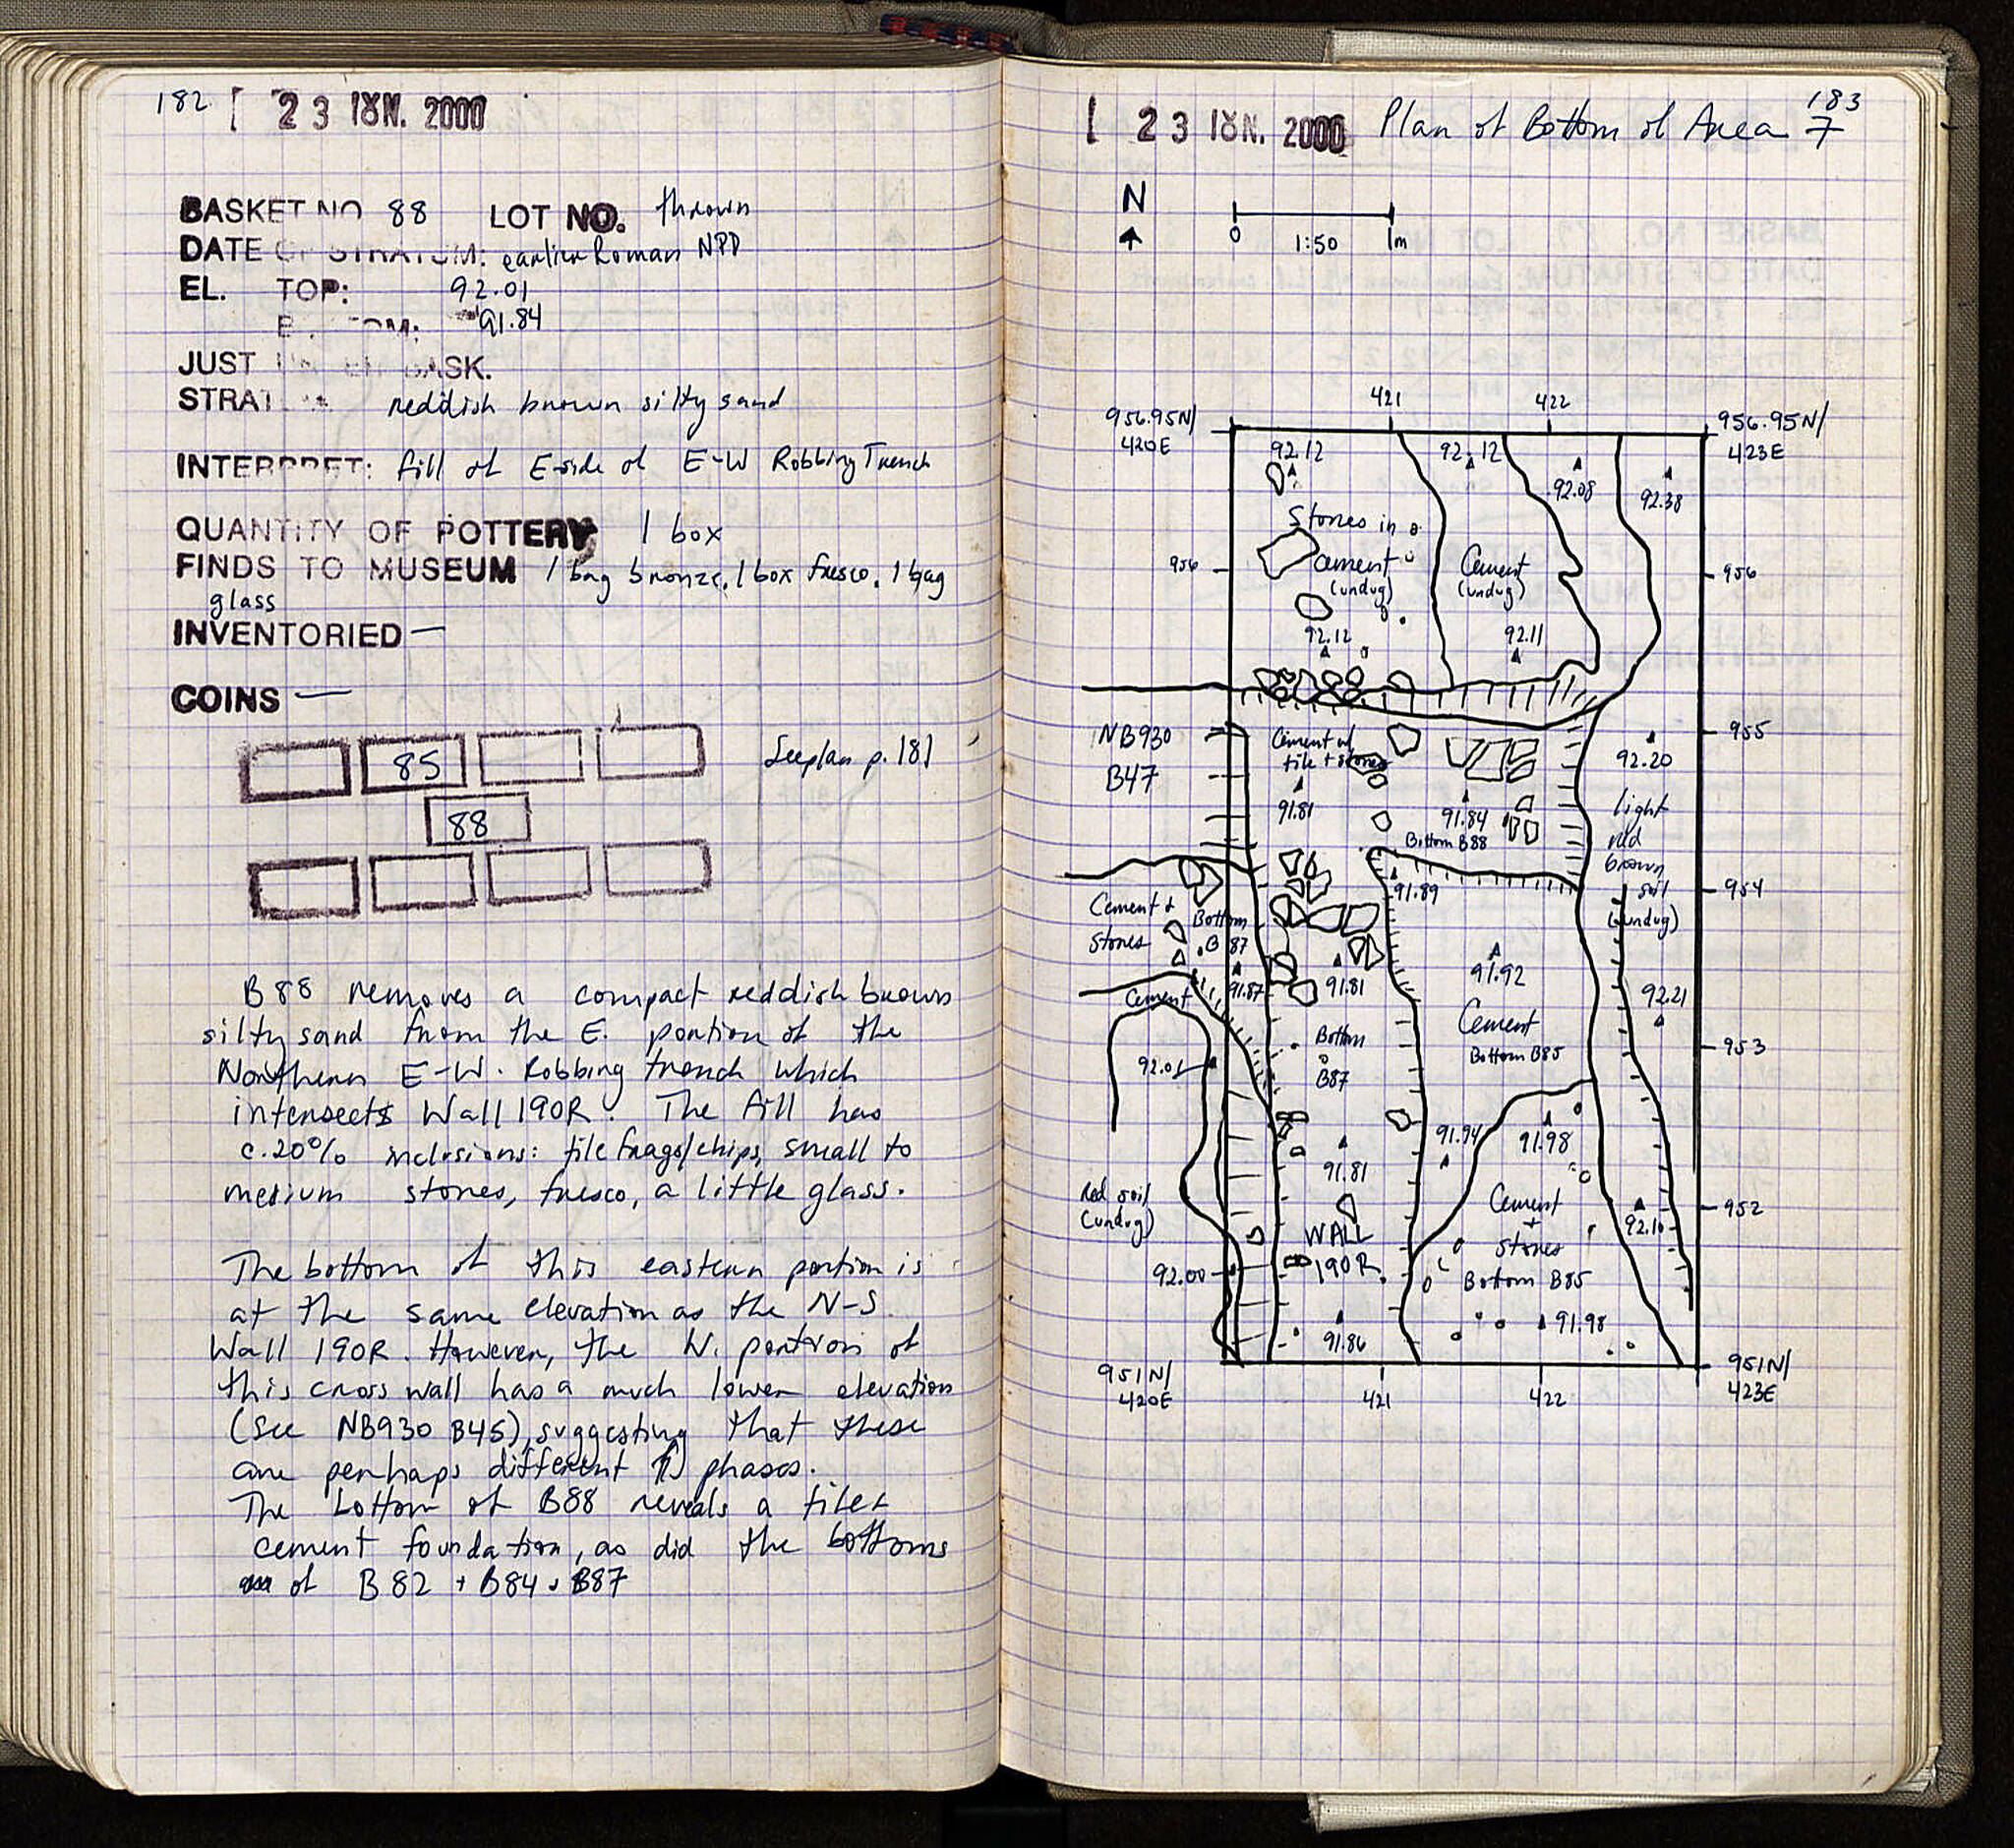 182 [ 23 ΙΟΥΝ. 2000
BASKET NO 88 LOT NO. thrown
DATE OF STRATUM: earlier Roman NPD
EL. TOP: 92.01
BOTTOM: 91.84
JUST UNDER BASK.
STRATUM reddish brown silty sand
INTERPRET: fill of E-side of E-W Robbing Trench
QUANTITY OF POTTERY 1 box
FINDS TO MUSEUM 1 bag bronze, 1 box fresco, 1 bag
glass
INVENTORIED —
COINS —
85
See plan p. 181
88
B88 removes a compact reddish brown
silty sand from the E. portion of the
Northern E-W. Robbing trench which
intersects Wall 190R. The fill has
c.20% inclusions: tile frags/chips, small to
medium stones, fresco, a little glass.
The bottom of this eastern portion is
at the same elevation as the N-S
Wall 190R. However, the W. portion of
this cross wall has a much lower elevation
(see NB930 B45), suggesting that these
are perhaps different phases.
The bottom of B88 reveals a tile +
cement foundation, as did the bottoms
of B82 + B84, B87
183
[ 23 ΙΟΥΝ. 2000 Plan of Bottom of Area 7
N
0 1:50 1m
421 422
956.95N/
420E
956.95N/
423E
92.12
92.12
92.08
92.38
Stones in
cement
(undug)
Cement
(undug)
956
956
92.12
92.11
NB930
B47
Cement w/
tile + stones
955
92.20
91.81
91.84
Bottom B88
light
red
brown
soil
(undug)
954
91.89
Cement +
stones
Bottom
B87
91.87
91.81
91.92
Cement
Bottom B85
92.21
Cement
Bottom
B87
953
92.01
91.94
91.98
91.81
Red soil
(undug)
Cement
+
stones
Bottom B85
92.10
952
WALL
190R
92.00
91.86
91.98
951N/
420E
951N/
423E
421 422